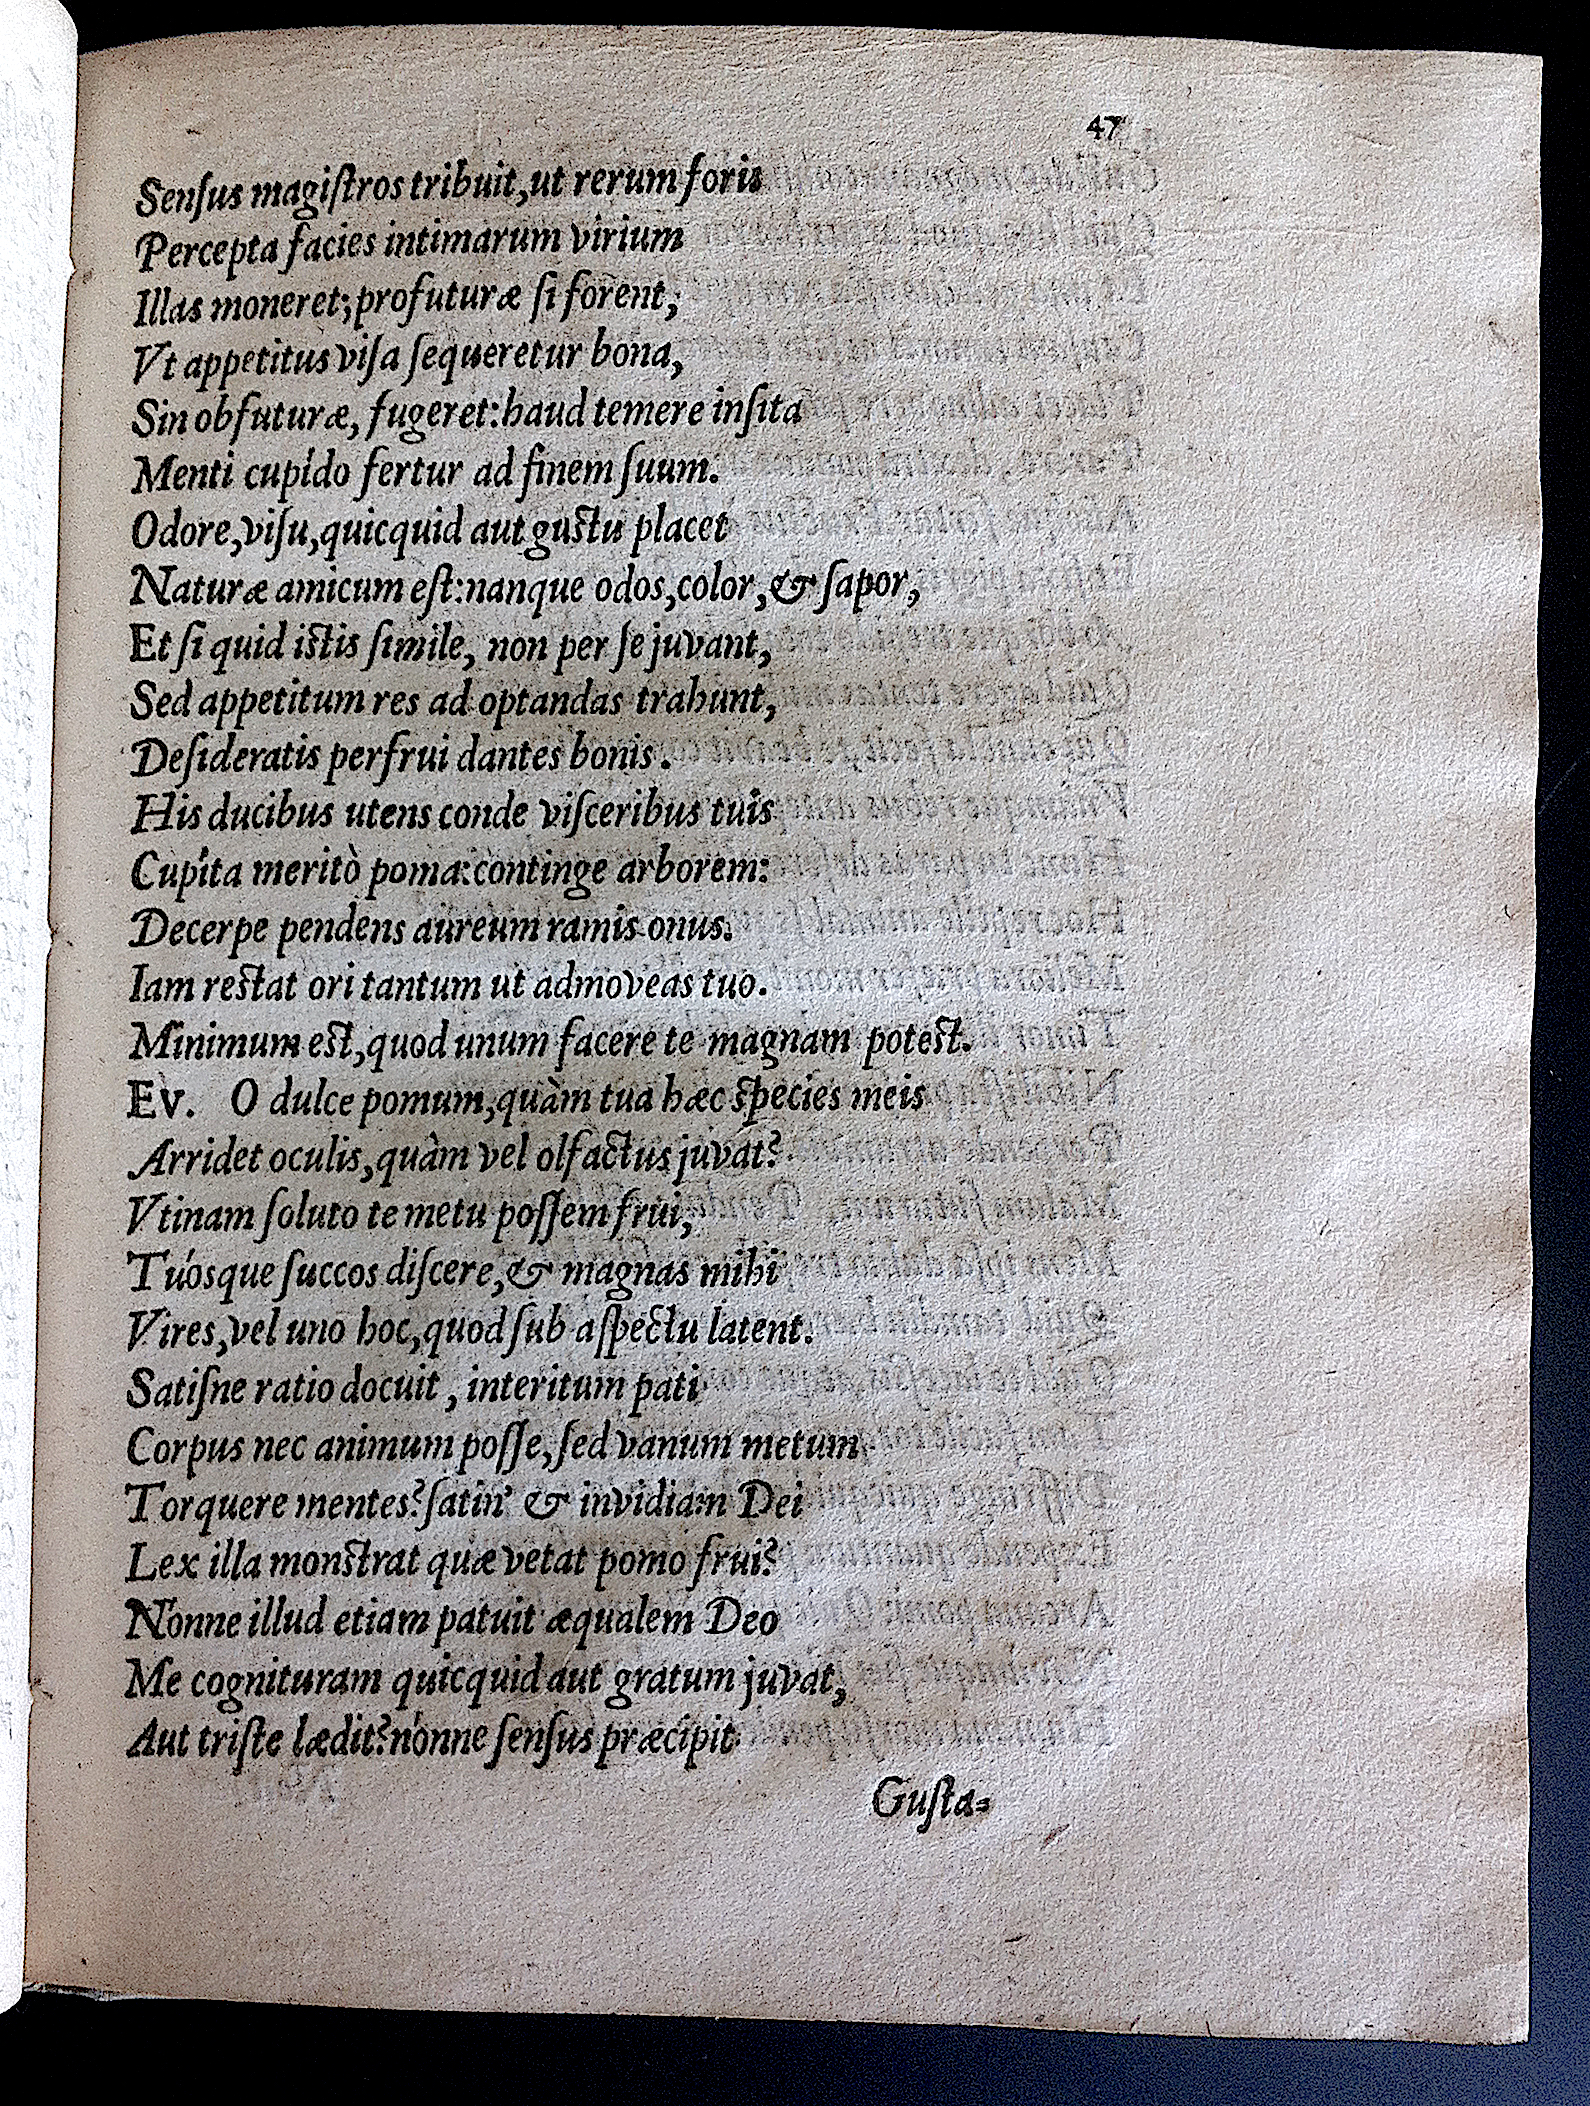 47
Senſus magiſtros tribuit,ut rerum foris
Percepta facies intimarum virium
Illas moneret; profuturæ ſi forent,
Vt appetitus viſa ſequeretur bona,
Sin obfuturæ, fugeret: haud temere inſita
Menti cupido fertur ad finem ſuum.
Odore,viſu,quicquid aut guſtu placet
Naturæ amicum eſt: nanque odos,color,& ſapor,
Et ſi quid iſtis ſimile, non per ſe juvant,
Sed appetitum res ad optandas trahunt,
Deſideratis perfrui dantes bonis.
His ducibus utens conde viſceribus tuis
Cupita meritò poma: continge arborem:
Decerpe pendens aureum ramis onus.
Iam reſtat ori tantum ut admoveas tuo.
Minimum eſt,quod unum facere te magnam poteſt.
Ev. O dulce pomum,quàm tua hæc ſpecies meis
Arridet oculis,quàm vel olfactus juvat?
Vtinam ſoluto te metu poſſem frui,
Tuosque ſuccos diſcere,& magnas mihi
Vires,vel uno hoc,quod ſub aſpectu latent.
Satiſne ratio docuit, interitum pati
Corpus nec animum poſſe,ſed vanum metum
Torquere mentes? ſatin' & invidiam Dei
Lex illa monſtrat quæ vetat pomo frui?
Nonne illud etiam patuit æqualem Deo
Me cognituram quicquid aut gratum juvat,
Aut triſte lædit? nonne ſenſus præcipit
Guſta-